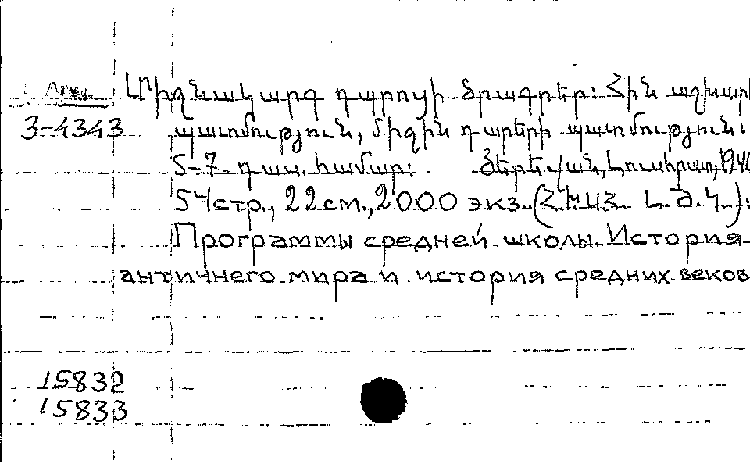 Միջնակարգ դպրոցի ծրագրեր: Հին աշխարհի
3-4343 պատմություն, միջին դարերի պատմություն:
5-7 դաս. համար: Յերևան, Լուսհրատ, 1940
54стр., 22см., 2000 экз. (ՀԽՍՀ Լ.Ժ.Կ.):
Программы средней школы. История
античнего мира и история средних веков
15832
15833